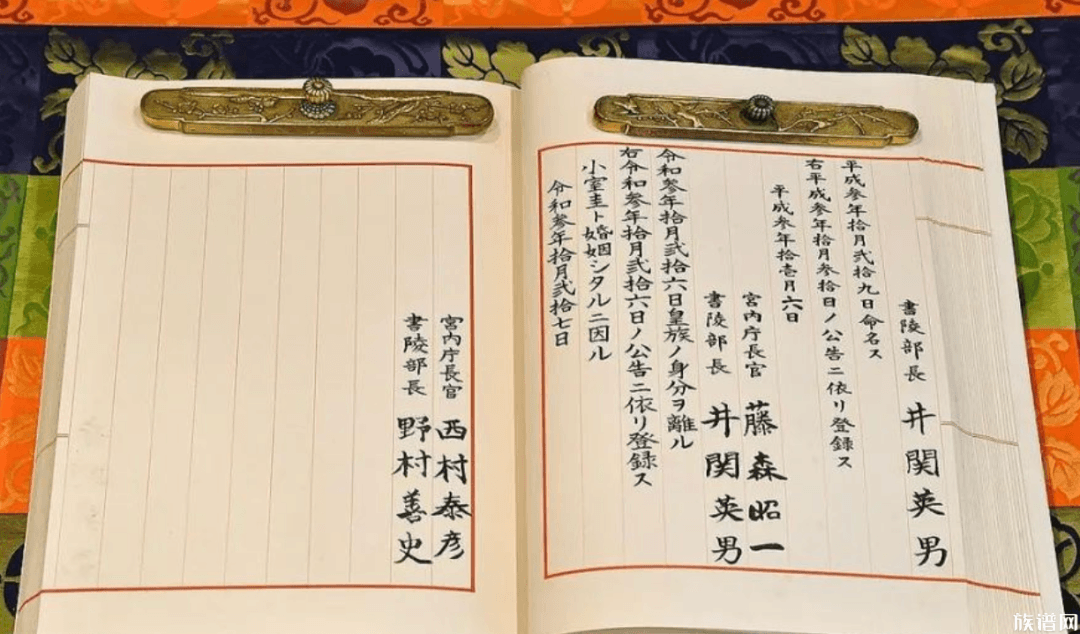 書陵部長 井関英男
平成参年拾月弐拾九日命名ス
右平成参年拾月参拾日ノ公告ニ依リ登録ス
平成参年拾壱月六日
宮内庁長官 藤森昭一
書陵部長 井関英男
令和参年拾月弐拾六日皇族ノ身分ヲ離ル
右令和参年拾月弐拾六日ノ公告ニ依リ登録ス
小室圭ト婚姻シタルニ因ル
令和参年拾月弐拾七日
宮内庁長官 西村泰彦
書陵部長 野村善史
族谱网